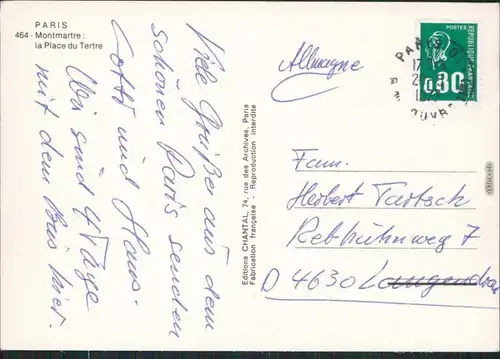 PARIS
464 - Montmartre :
la Place du Tertre
Viele Grüße aus dem
schönen Paris senden
Lotti und Hans.
Wir sind 4 Tage
mit dem Bus hier.
Editions CHANTAL, 74, rue des Archives, Paris
Fabrication Française - Reproduction interdite
Allemagne
POSTES
REPUBLIQUE FRANÇAISE
0,80
PARIS
LOUVRE
Fam.
Herbert
Rebhuhnweg 7
D 4630